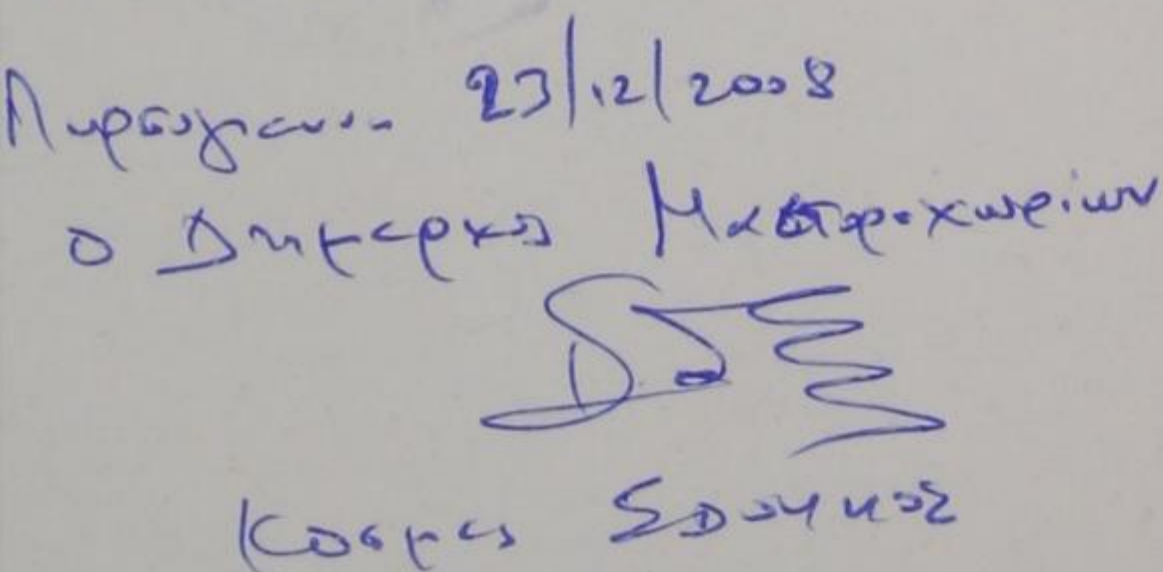 Πυρσόγιαννη 23/12/2008
Ο Δήμαρχος Μαστοροχωρίων
Κοσμάς Σδούκος